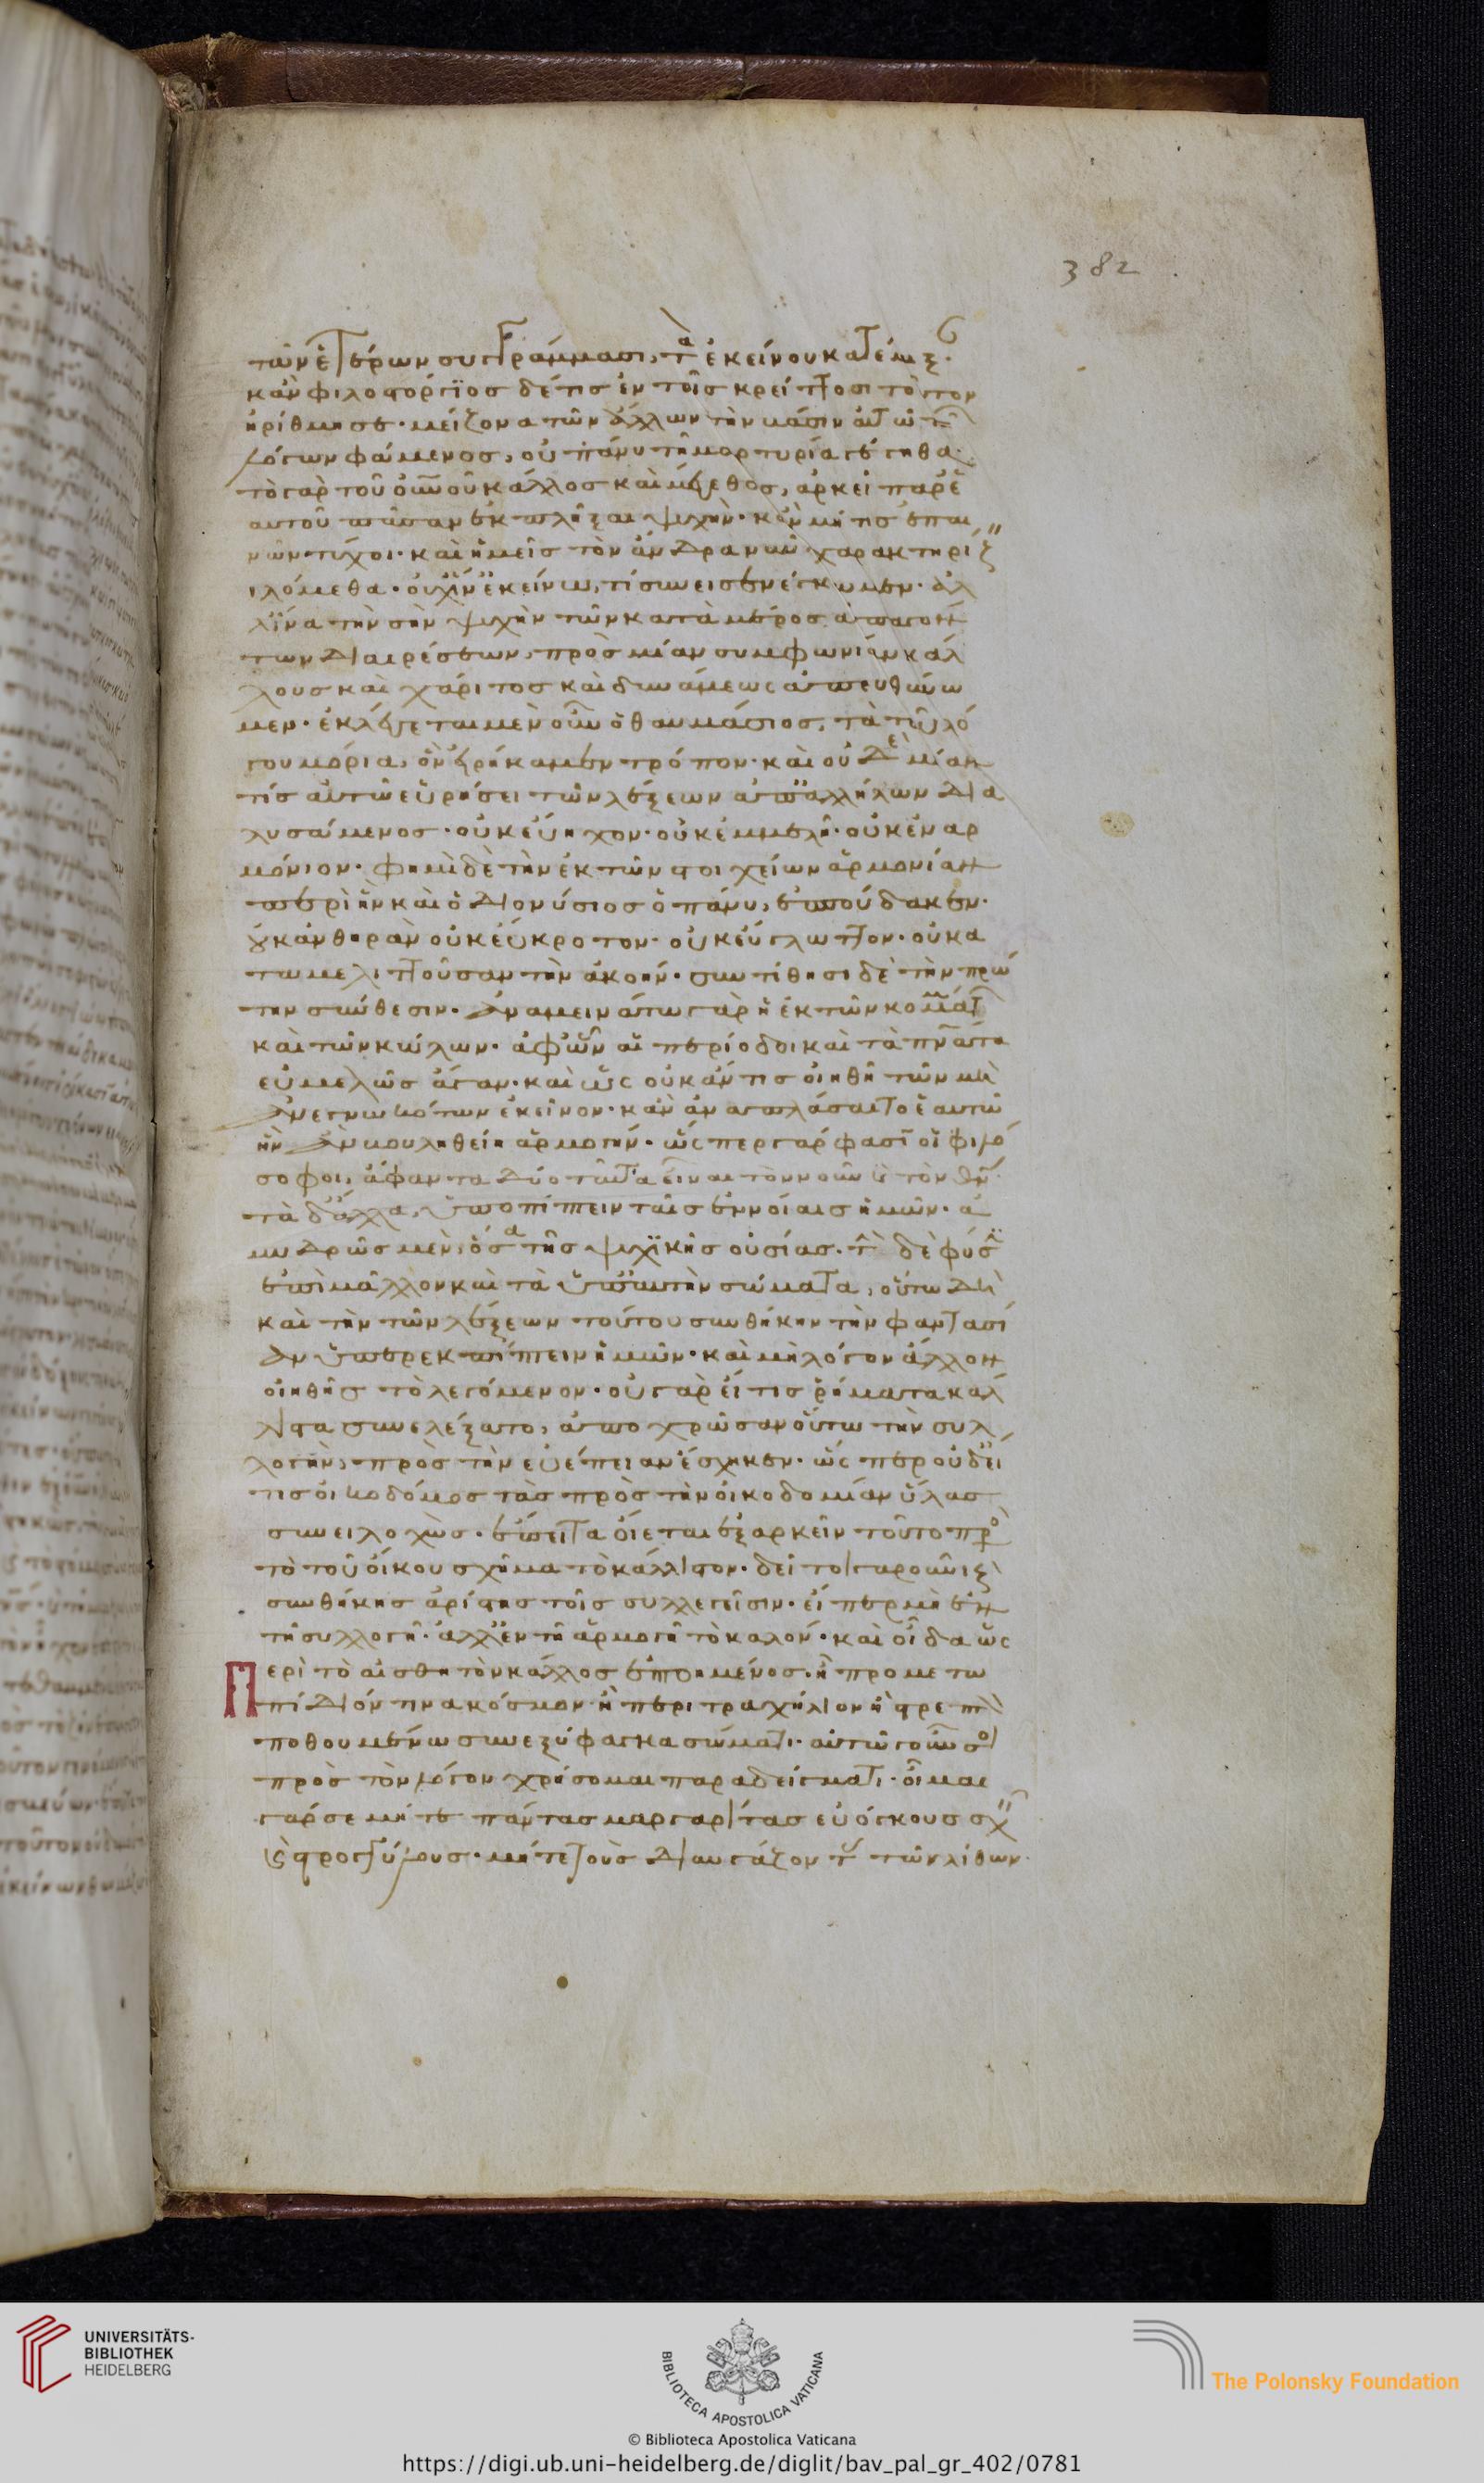 382
τῶν ἑτέρων συγγράμμασι, τὰ ἐκείνου κατέμιξε.
κἂν φιλοστόργιος δέ τις ἐν τοῖς κρείττοσι τοῦτον
ἠρίθμησε· μείζονα τῶν ἄλλων τὴν βάσιν αὐτῷ τῶν
λόγων φάμενος, οὐ πάνυ τῇ μαρτυρίᾳ γέγηθα·
τὸ γὰρ τοῦ ὄντος κάλλος καὶ μέγεθος, ἀρκεῖ παρ' ἑ
αυτοῦ πᾶσαν ἐκπλῆξαι ψυχὴν· κἂν μή τις ἐπαι
νῶν τύχοι· καὶ ἡμεῖς τὸν ἄνδρα νῦν χαρακτηρίζειν
ιλόμεθα· οὐχ ἵν' ἐκείνῳ, τί συνεισενέγκωμεν· ἀλ
λ' ἵνα τὴν σὴν ψυχὴν τῶν κατὰ μέρος ἀπαγαγόν
των διαιρέσεων, πρὸς μίαν συμφωνίαν κάλ
λους καὶ χάριτος καὶ δυνάμεως ἀπευθύνω
μεν· ἐκλέγεται μὲν οὖν ὁ θαυμάσιος, τὰ τοῦ λό
γου μόρια, ὃν εἰρήκαμεν τρόπον· καὶ οὐδὲ μίαν
τίς αὐτῷ εὑρήσει τῶν λέξεων ἀπ' ἀλλήλων δια
λυσάμενος· οὐκ εὔηχον· οὐκ ἐμμελῆ· οὐκ ἐναρ
μόνιον· φημὶ δὲ τὴν ἐκ τῶν στοιχείων ἁρμονίαν
περὶ ἣν καὶ ὁ Διονύσιος ὁ πάνυ, ἐσπούδακεν·
οὐκ ἀνθηρὰν οὐκ εὔκροτον· οὐκ εὔγλωττον· οὐ κα
ταμελιττοῦσαν τὴν ἀκοήν· συντίθησι δὲ τὴν πρώ
την σύνθεσιν· ἀναμεινάτω γὰρ ἡ ἐκ τῶν κομμάτων
καὶ τῶν κώλων· ἀφ' ὧν αἱ περίοδοι καὶ τὰ πνεύματα
εὐμελῶς ἄγαν· καὶ ὡς οὐκ ἄν τις οἰηθῇ τῶν μὴ
ἀνεγνωκότων ἐκεῖνον· κἂν ἀναπλάσαιτο ἑαυτῷ
ἣν ἂν βουληθείη ἁρμογήν· ὥσπερ γάρ φασιν οἱ φιλό
σοφοι, ἄφαντα δύο ταῦτα εἶναι τὸν νοῦν καὶ τὸν θεόν·
τὰ δ' ἄλλα, ὑποπίπτειν ταῖς ἐννοίαις ἡμῶν· ἀ
μυδρῶς μὲν, ὅσα τῆς ψυχικῆς οὐσίας· τὴν δὲ φύσιν
ἐπὶ μᾶλλον καὶ τὰ ὑπ' αὐτὴν σώματα, οὕτω δὴ
καὶ τὴν τῶν λέξεων τούτου συνθήκην τὴν φαντασί
αν ὑπερεκπίπτειν ἡμῶν· καὶ μὴ λόγον ἄλλον
οἰηθῇς τὸ λεγόμενον· οὐ γὰρ εἴ τις ῥήματα κάλ
λιστα συνελέξατο, ἀποχρῶσαν οὕτω τὴν συλ
λογὴν, πρὸς τὴν εὐέπειαν ἔσχηκεν· ὥσπερ οὐδ' εἴ
τις οἰκοδόμος τὰς πρὸς τὴν οἰκοδομίαν ὕλας
συνειλοχὼς· ἔπειτα οἴεται ἐξαρκεῖν τοῦτο πρὸς
τὸ τοῦ οἴκου σχῆμα τὸ κάλλιστον· δεῖ τοιγαροῦν καὶ
συνθήκης ἀρίστης τοῖς συλλεγεῖσιν· εἴπερ μὴ ἐν
τῇ συλλογῇ· ἀλλ' ἐν τῇ ἁρμογῇ τὸ καλόν· καὶ οἶδα ὡς
περὶ τὸ αἰσθητὸν κάλλος ἐπτοημένος, ἢ προμετω
πίδιόν τινα κόσμον ἢ περιτραχήλιον ἢ στρεπτὸν
ποθουμένῳ συνεξύφαγκα σώματι· αὐτῷ γοῦν σοι
πρὸς τὸν λόγον χρήσομαι παραδείγματι· οἶμαι
γάρ σε μήτε πάντας μαργαρίτας εὐόγκους σχεῖν
καὶ στρογγύλους· μήτε τοὺς διαυγάζοντας τῶν λίθων·
UNIVERSITÄTS-
BIBLIOTHEK
HEIDELBERG
BIBLIOTECA APOSTOLICA VATICANA
© Biblioteca Apostolica Vaticana
The Polonsky Foundation
https://digi.ub.uni-heidelberg.de/diglit/bav_pal_gr_402/0781